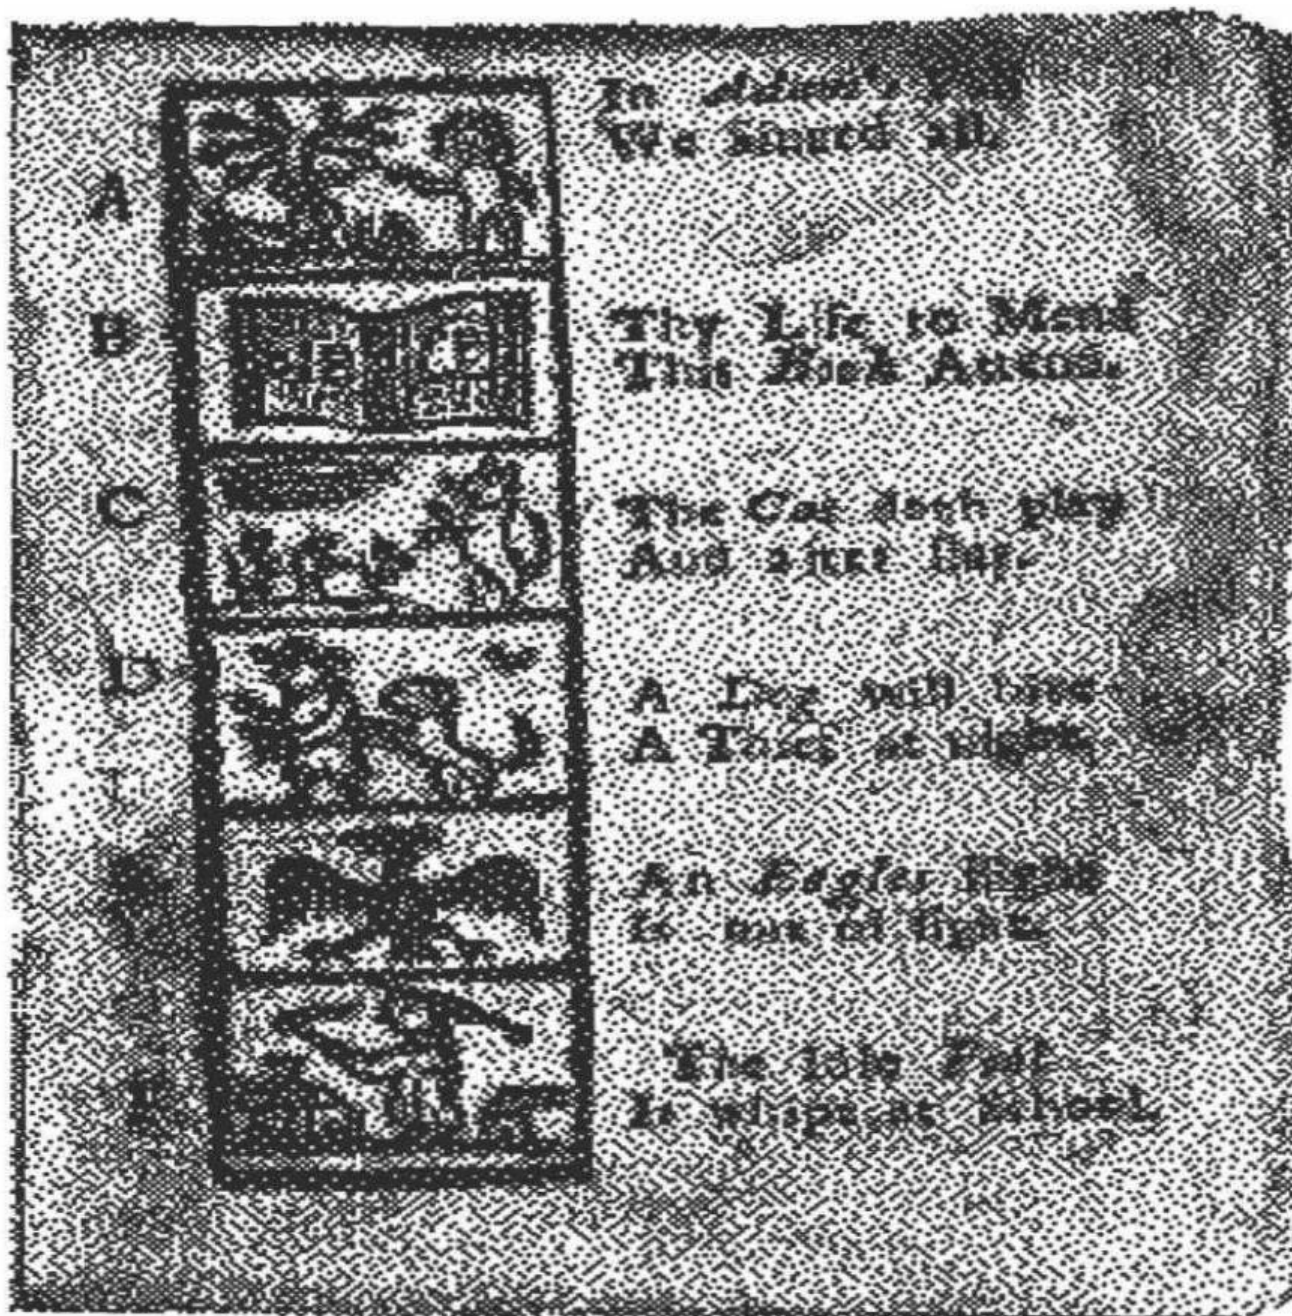 A
In Adam's Fall
We sinned all.
B
Thy Life to Mend
This Book Attend.
C
The Cat doth play
And after slay.
D
A Dog will bite
A Thief at night.
An Eagles flight
Is out of sight.
F
The Idle Fool
Is whipt at School.